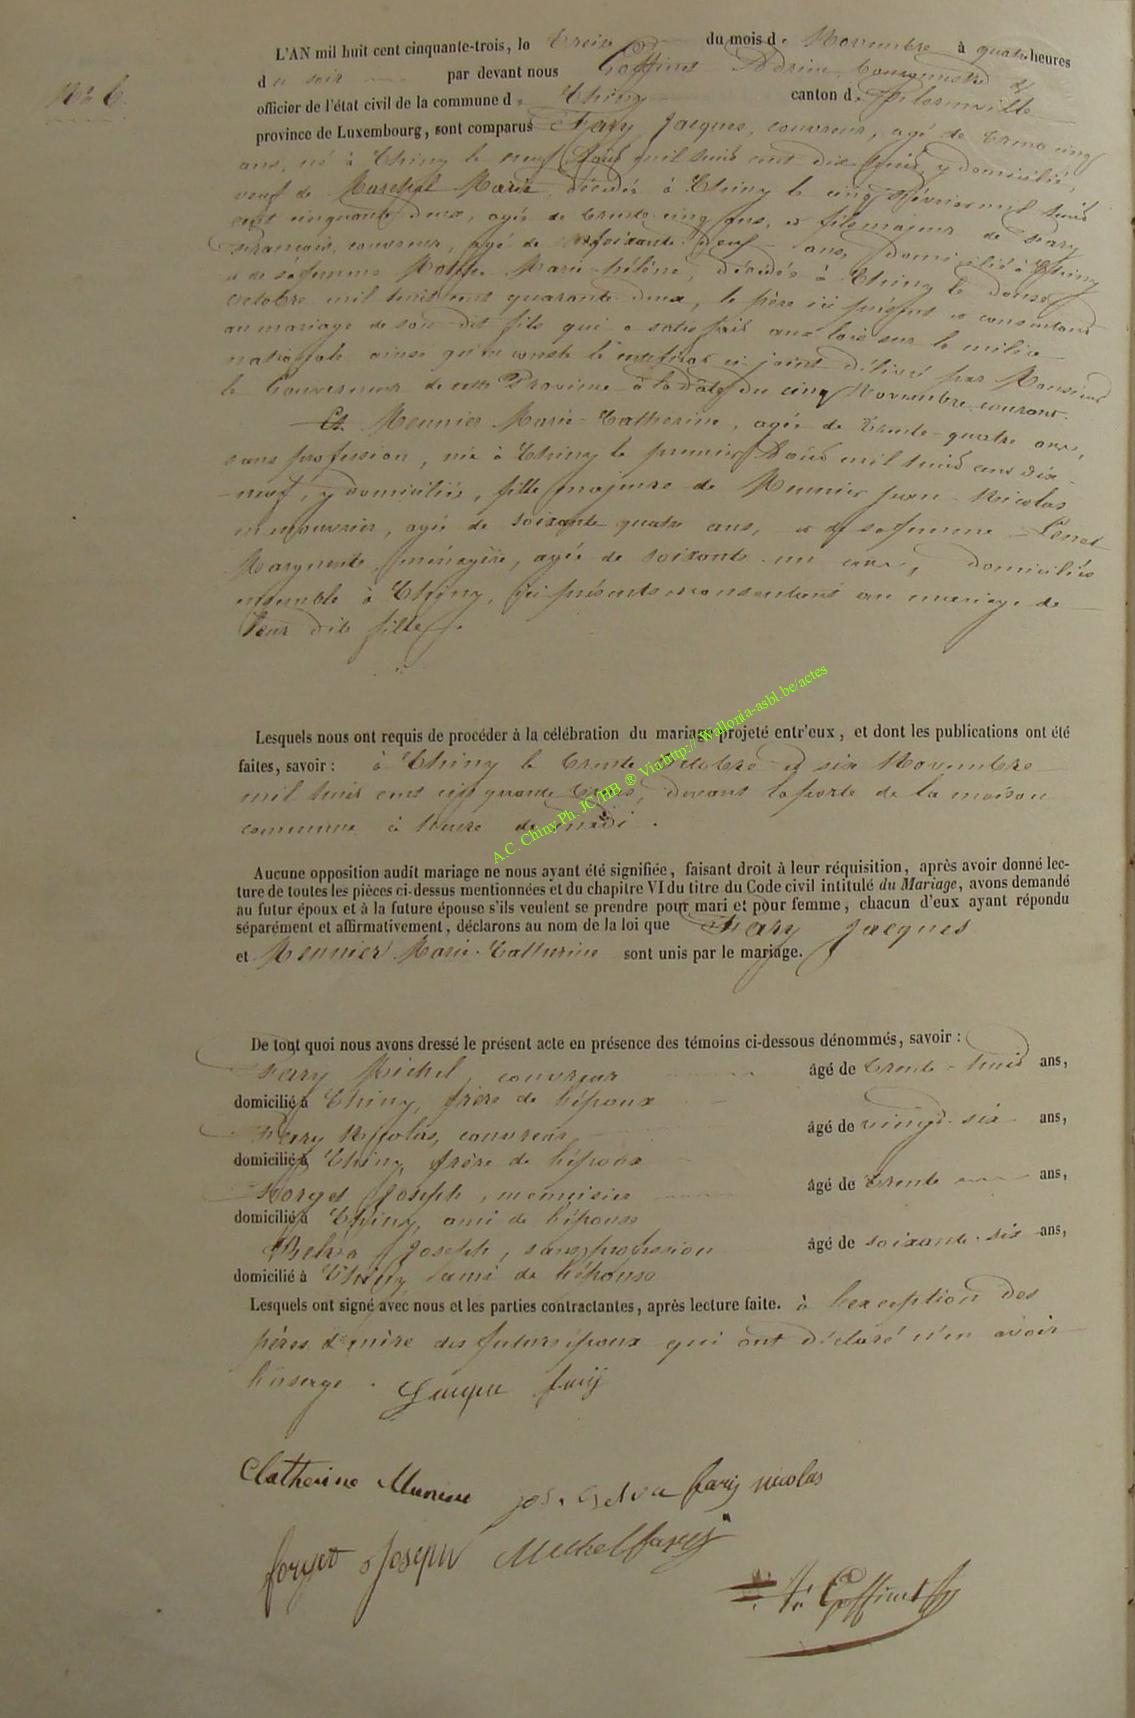 N° 6.
L'AN mil huit cent cinquante-trois, le treize du mois de Novembre à quatre heures
du soir par devant nous Goffinet Bourgmestre
officier de l'état civil de la commune de Chiny canton de
province de Luxembourg, sont comparus Fary Jacques, couvreur, agé de trente cinq
ans, né à Chiny le neuf Août mil huit cent dix huit, y domicilié,
veuf de Marechal Marie, décédée à Chiny le cinq Février mil huit
cent cinquante deux, agée de trente cinq ans, et fils majeur de Fary
François, couvreur, agé de soixante neuf ans, domicilié à Chiny
et de sa femme Marie-hélène, décédée à Chiny le douze
octobre mil huit cent quarante deux, le père ici présent et consentant
au mariage de son dit fils qui a satisfait aux lois sur la milice
nationale ainsi qu'il conste le certificat ci joint délivré par Monsieur
le Gouverneur de cette Province à la date du cinq Novembre courant.
Et Meunier Marie-Catherine, agée de trente-quatre ans,
sans profession, née à Chiny le premier Août mil huit cent dix-
neuf, y domiciliée, fille majeure de Meunier Jean-Nicolas
manouvrier, agé de soixante quatre ans, et de sa femme
Marguerite, ménagère, agée de soixante un ans, domiciliés
ensemble à Chiny, ici présents et consentant au mariage de
leur dite fille.
Lesquels nous ont requis de procéder à la célébration du mariage projeté entr'eux, et dont les publications ont été
faites, savoir : à Chiny le trente Octobre et six Novembre
mil huit cent cinquante trois, devant la porte de la maison
commune à heure de midi.
A.C. Chiny Ph. JC/HB ® Via http:// Wallonia-asbl.be/actes
Aucune opposition audit mariage ne nous ayant été signifiée, faisant droit à leur réquisition, après avoir donné lec-
ture de toutes les pièces ci-dessus mentionnées et du chapitre VI du titre du Code civil intitulé du Mariage, avons demandé
au futur époux et à la future épouse s'ils veulent se prendre pour mari et pour femme, chacun d'eux ayant répondu
séparément et affirmativement, déclarons au nom de la loi que Fary Jacques
et Meunier Marie-Catherine sont unis par le mariage.
De tout quoi nous avons dressé le présent acte en présence des témoins ci-dessous dénommés, savoir :
Fary Michel, couvreur âgé de trente-huit ans,
domicilié à Chiny, frère de l'époux
Fary Nicolas, couvreur, âgé de vingt-six ans,
domicilié à Chiny, frère de l'époux
Forget Joseph, menuisier âgé de trente ans,
domicilié à Chiny, ami de l'épouse
Joseph, sans profession âgé de soixante-six ans,
domicilié à Chiny ami de l'épouse
Lesquels ont signé avec nous et les parties contractantes, après lecture faite. à l'exception des
pères & mère des futurs époux qui ont déclaré n'en avoir
l'usage.
Jacque farij
Catherine Munier jos. farij nicolas
forget Joseph Michel farij
Goffinet